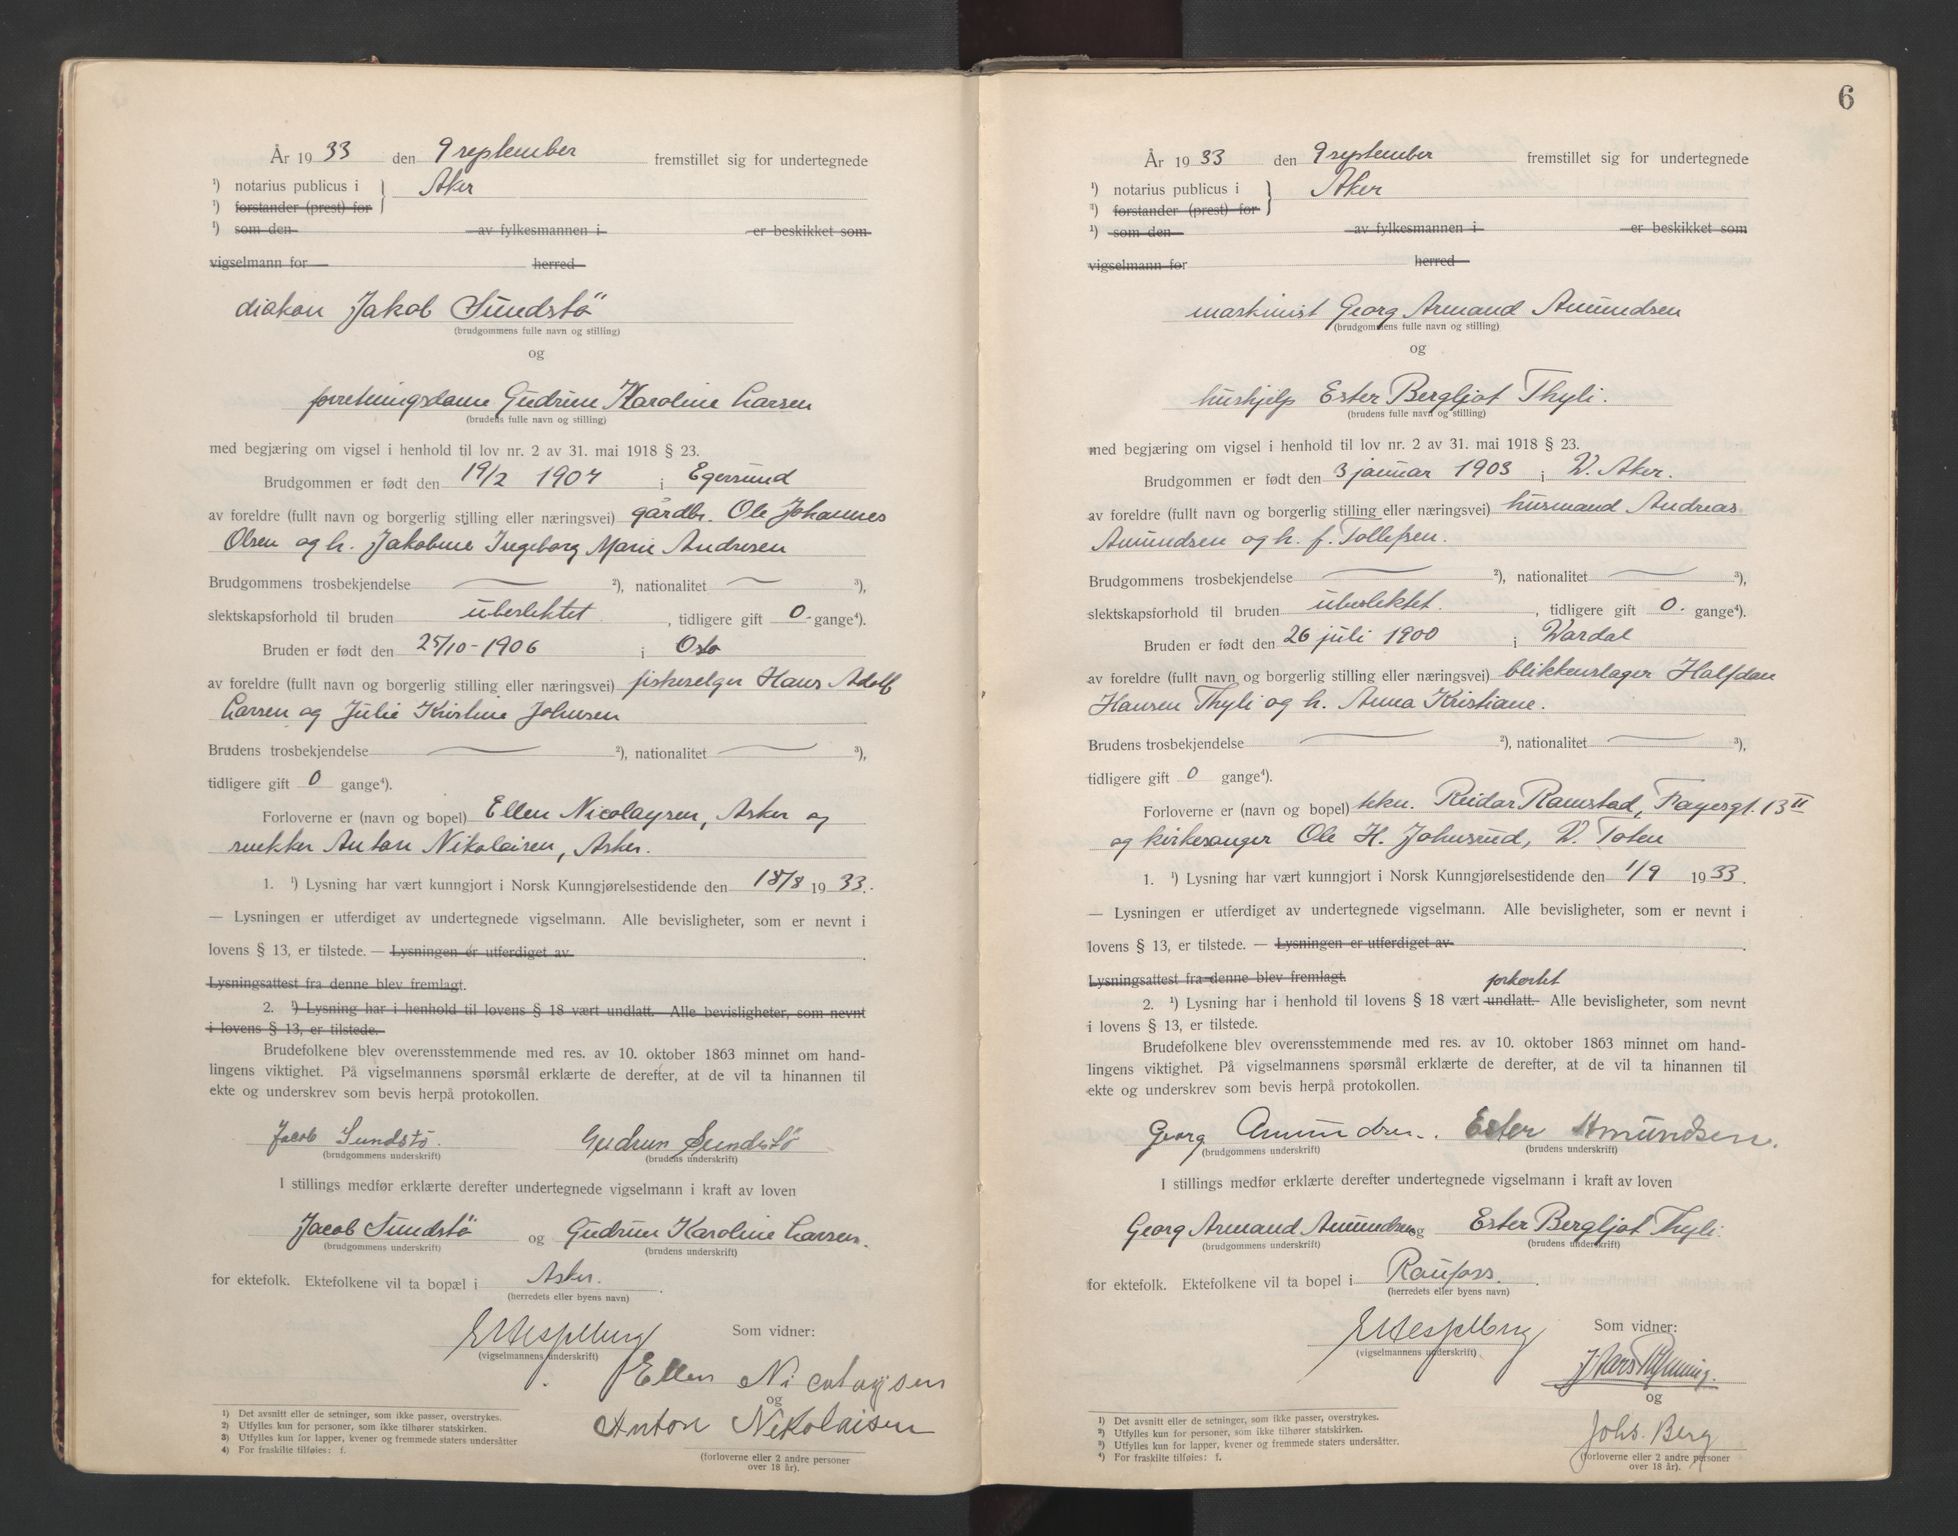 År 19 33 den 9 september fremstillet sig for undertegnede
¹) notarius publicus i } Aker
¹) forstander (prest) for
¹) som den av fylkesmannen i er beskikket som
vigselmann for herred
diakon Jakob Sundstö
(brudgommens fulle navn og stilling)
og
forretningsdame Gudrun Karoline Larsen
(brudens fulle navn og stilling)
med begjæring om vigsel i henhold til lov nr. 2 av 31. mai 1918 § 23.
Brudgommen er født den 19/2 1907 i Egersund
av foreldre (fullt navn og borgerlig stilling eller næringsvei) gårdbr. Ole Johannes
Olsen og h. Jakobine Ingeborg Marie Andresen
Brudgommens trosbekjendelse — ²), nationalitet — ³),
slektskapsforhold til bruden ubeslektet, tidligere gift 0 - gange⁴).
Bruden er født den 25/10-1906 i Oslo
av foreldre (fullt navn og borgerlig stilling eller næringsvei) fiskeselger Hans Adolf
Larsen og Julie Kristine Johnsen
Brudens trosbekjendelse — ²), nationalitet — ³),
tidligere gift 0 gange⁴).
Forloverne er (navn og bopel) Ellen Nicolaysen, Asker og
snekker Anton Nikolaisen, Asker.
1. ¹) Lysning har vært kunngjort i Norsk Kunngjørelsestidende den 18/8 19 33.
— Lysningen er utferdiget av undertegnede vigselmann. Alle bevisligheter, som er nevnt i
lovens § 13, er tilstede. — Lysningen er utferdiget av
Lysningsattest fra denne blev fremlagt.
2. ¹) Lysning har i henhold til lovens § 18 vært undlatt. Alle bevisligheter, som nevnt
i lovens § 13, er tilstede.
Brudefolkene blev overensstemmende med res. av 10. oktober 1863 minnet om hand-
lingens viktighet. På vigselmannens spørsmål erklærte de derefter, at de vil ta hinannen til
ekte og underskrev som bevis herpå protokollen.
Jacob Sundstö. Gudrun Sundstö
(brudgommens underskrift) (brudens underskrift)
I stillings medfør erklærte derefter undertegnede vigselmann i kraft av loven
Jacob Sundstö og Gudrun Karoline Larsen.
(brudgommens underskrift) (brudens underskrift)
for ektefolk. Ektefolkene vil ta bopæl i Asker.
(herredets eller byens navn)
Som vidner:
(vigselmannens underskrift)
Ellen Nicolaysen
og
Anton Nikolaisen
(forloverne eller 2 andre personer
over 18 år).
1) Det avsnitt eller de setninger, som ikke passer, overstrykes.
2) Utfylles kun for personer, som ikke tilhører statskirken.
3) Utfylles kun for lapper, kvener og fremmede staters undersåtter
4) For fraskilte tilføies: f.
6
År 19 33 den 9 september fremstillet sig for undertegnede
¹) notarius publicus i } Aker
¹) forstander (prest) for
¹) som den av fylkesmannen i er beskikket som
vigselmann for herred
maskinist Georg Armand Amundsen
(brudgommens fulle navn og stilling)
og
hushjelp Ester Bergljot Thyli.
(brudens fulle navn og stilling)
med begjæring om vigsel i henhold til lov nr. 2 av 31. mai 1918 § 23.
Brudgommen er født den 3 januar 1903 i V. Aker.
av foreldre (fullt navn og borgerlig stilling eller næringsvei) husmand Andreas
Amundsen og h. f. Tollefsen.
Brudgommens trosbekjendelse — ²), nationalitet — ³),
slektskapsforhold til bruden ubeslektet., tidligere gift 0 - gange⁴).
Bruden er født den 26 juli 1900 i Vardal
av foreldre (fullt navn og borgerlig stilling eller næringsvei) blikkenslager Halfdan
Hansen Thyli og h. Anna Kristiane.
Brudens trosbekjendelse — ²), nationalitet — ³),
tidligere gift 0 gange⁴).
Forloverne er (navn og bopel) tekn. Reidar Ramstad, Fayesgt. 13 II
og kirkesanger Ole H. Johnsrud, V. Toten
1. ¹) Lysning har vært kunngjort i Norsk Kunngjørelsestidende den 1/9 19 33.
— Lysningen er utferdiget av undertegnede vigselmann. Alle bevisligheter, som er nevnt i
lovens § 13, er tilstede. — Lysningen er utferdiget av
Lysningsattest fra denne blev fremlagt. forkortet
2. ¹) Lysning har i henhold til lovens § 18 vært undlatt. Alle bevisligheter, som nevnt
i lovens § 13, er tilstede.
Brudefolkene blev overensstemmende med res. av 10. oktober 1863 minnet om hand-
lingens viktighet. På vigselmannens spørsmål erklærte de derefter, at de vil ta hinannen til
ekte og underskrev som bevis herpå protokollen.
Georg Amundsen. Ester Amundsen.
(brudgommens underskrift) (brudens underskrift)
I stillings medfør erklærte derefter undertegnede vigselmann i kraft av loven
Georg Armand Amundsen og Ester Bergljot Thyli.
(brudgommens underskrift) (brudens underskrift)
for ektefolk. Ektefolkene vil ta bopel i Raufoss.
(herredets eller byens navn)
Som vidner:
(vigselmannens underskrift)
og
Johs. Berg
(forloverne eller 2 andre personer
over 18 år).
1) Det avsnitt eller de setninger, som ikke passer, overstrykes.
2) Utfylles kun for personer, som ikke tilhører statskirken.
3) Utfylles kun for lapper, kvener og fremmede staters undersåtter.
4) For fraskilte tilføies: f.